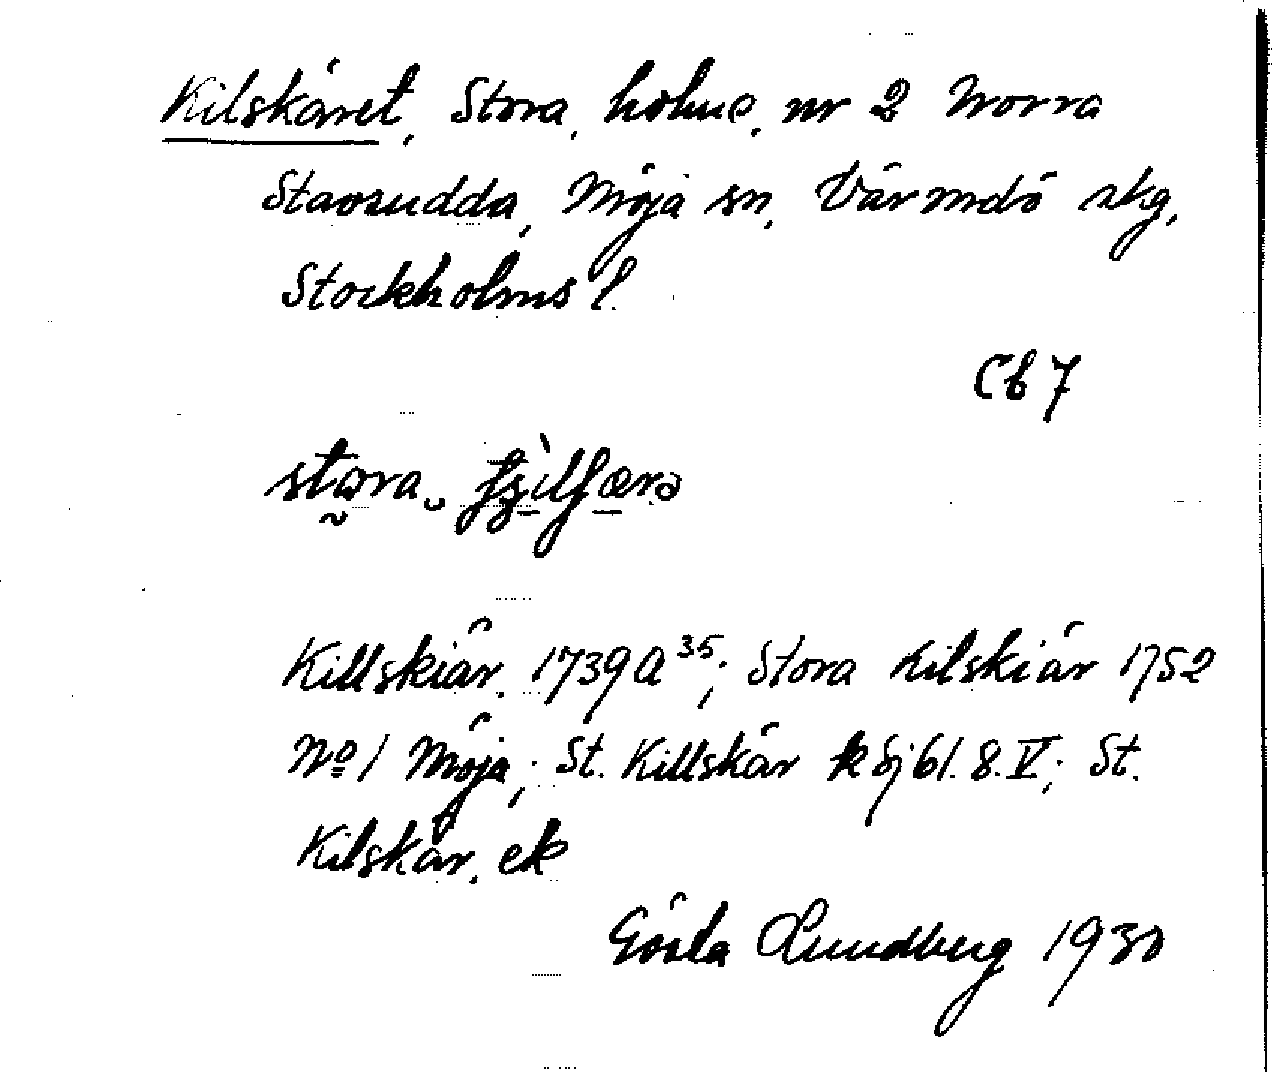 Kilskäret, Stora, holme, nr 2 Norra
Stavsudda, Möja sn, Värmdö skg,
Stockholms l.
Cb 7
stora
Killskiär. 1739 A 35; Stora Kilskiär 1752
No 1 Möja; St. Killskär k Sj 61. 8. V; St.
Kilskär. ek
Gösta Lundberg 1930